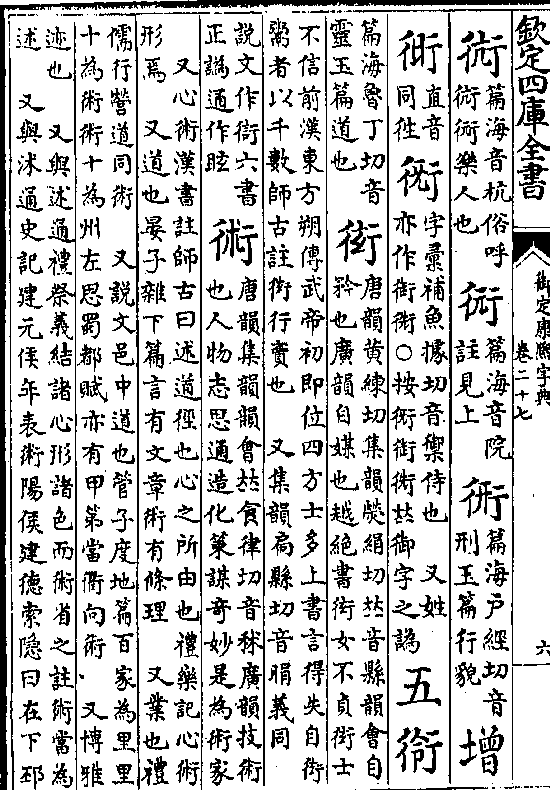 欽定四庫全書
御定康熙字典
卷二十七
六
䘕
篇海音杭俗呼
䘕衏樂人也
衏
篇海音院
註見上
篇海戶經切音
刑玉篇行貌
增
直音
同徃
字彙補魚據切音禦侍也 又姓
亦作 ○按 𠀤御字之譌
五
衑
篇海魯丁切音
靈玉篇道也
衒
唐韻黄練切集韻熒絹切𠀤音縣韻會自
矜也廣韻自媒也越絕書衒女不貞衒士
不信前漢東方朔傳武帝初即位四方士多上書言得失自衒
鬻者以千數師古註衒行賣也 又集韻扃縣切音睊義同
說文作 六書
正譌通作眩
術
唐韻集韻韻會𠀤食律切音秫廣韻技術
也人物志思通造化策謀奇妙是為術家
又心術漢書註師古曰述道徑也心之所由也禮樂記心術
形焉 又道也晏子雜下篇言有文章術有條理 又業也禮
儒行營道同術 又說文邑中道也管子度地篇百家為里里
十為術術十為州左思蜀都賦亦有甲第當衢向術 又博雅
迹也 又與述通禮祭義結諸心形諸色而術省之註術當為
述 又與沭通史記建元侯年表術陽侯建德索隱曰在下邳